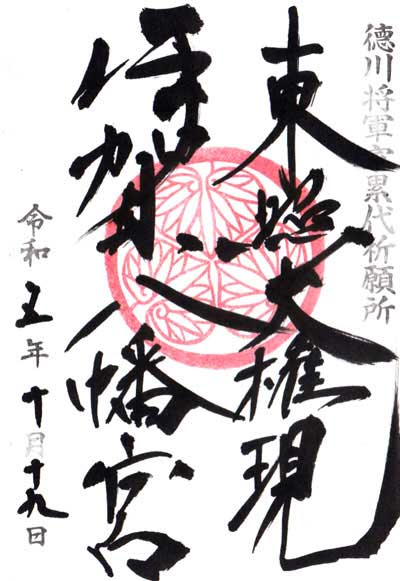 徳川将軍家累代祈願所
東照大権現
伊賀八幡宮
令和五年十月十九日